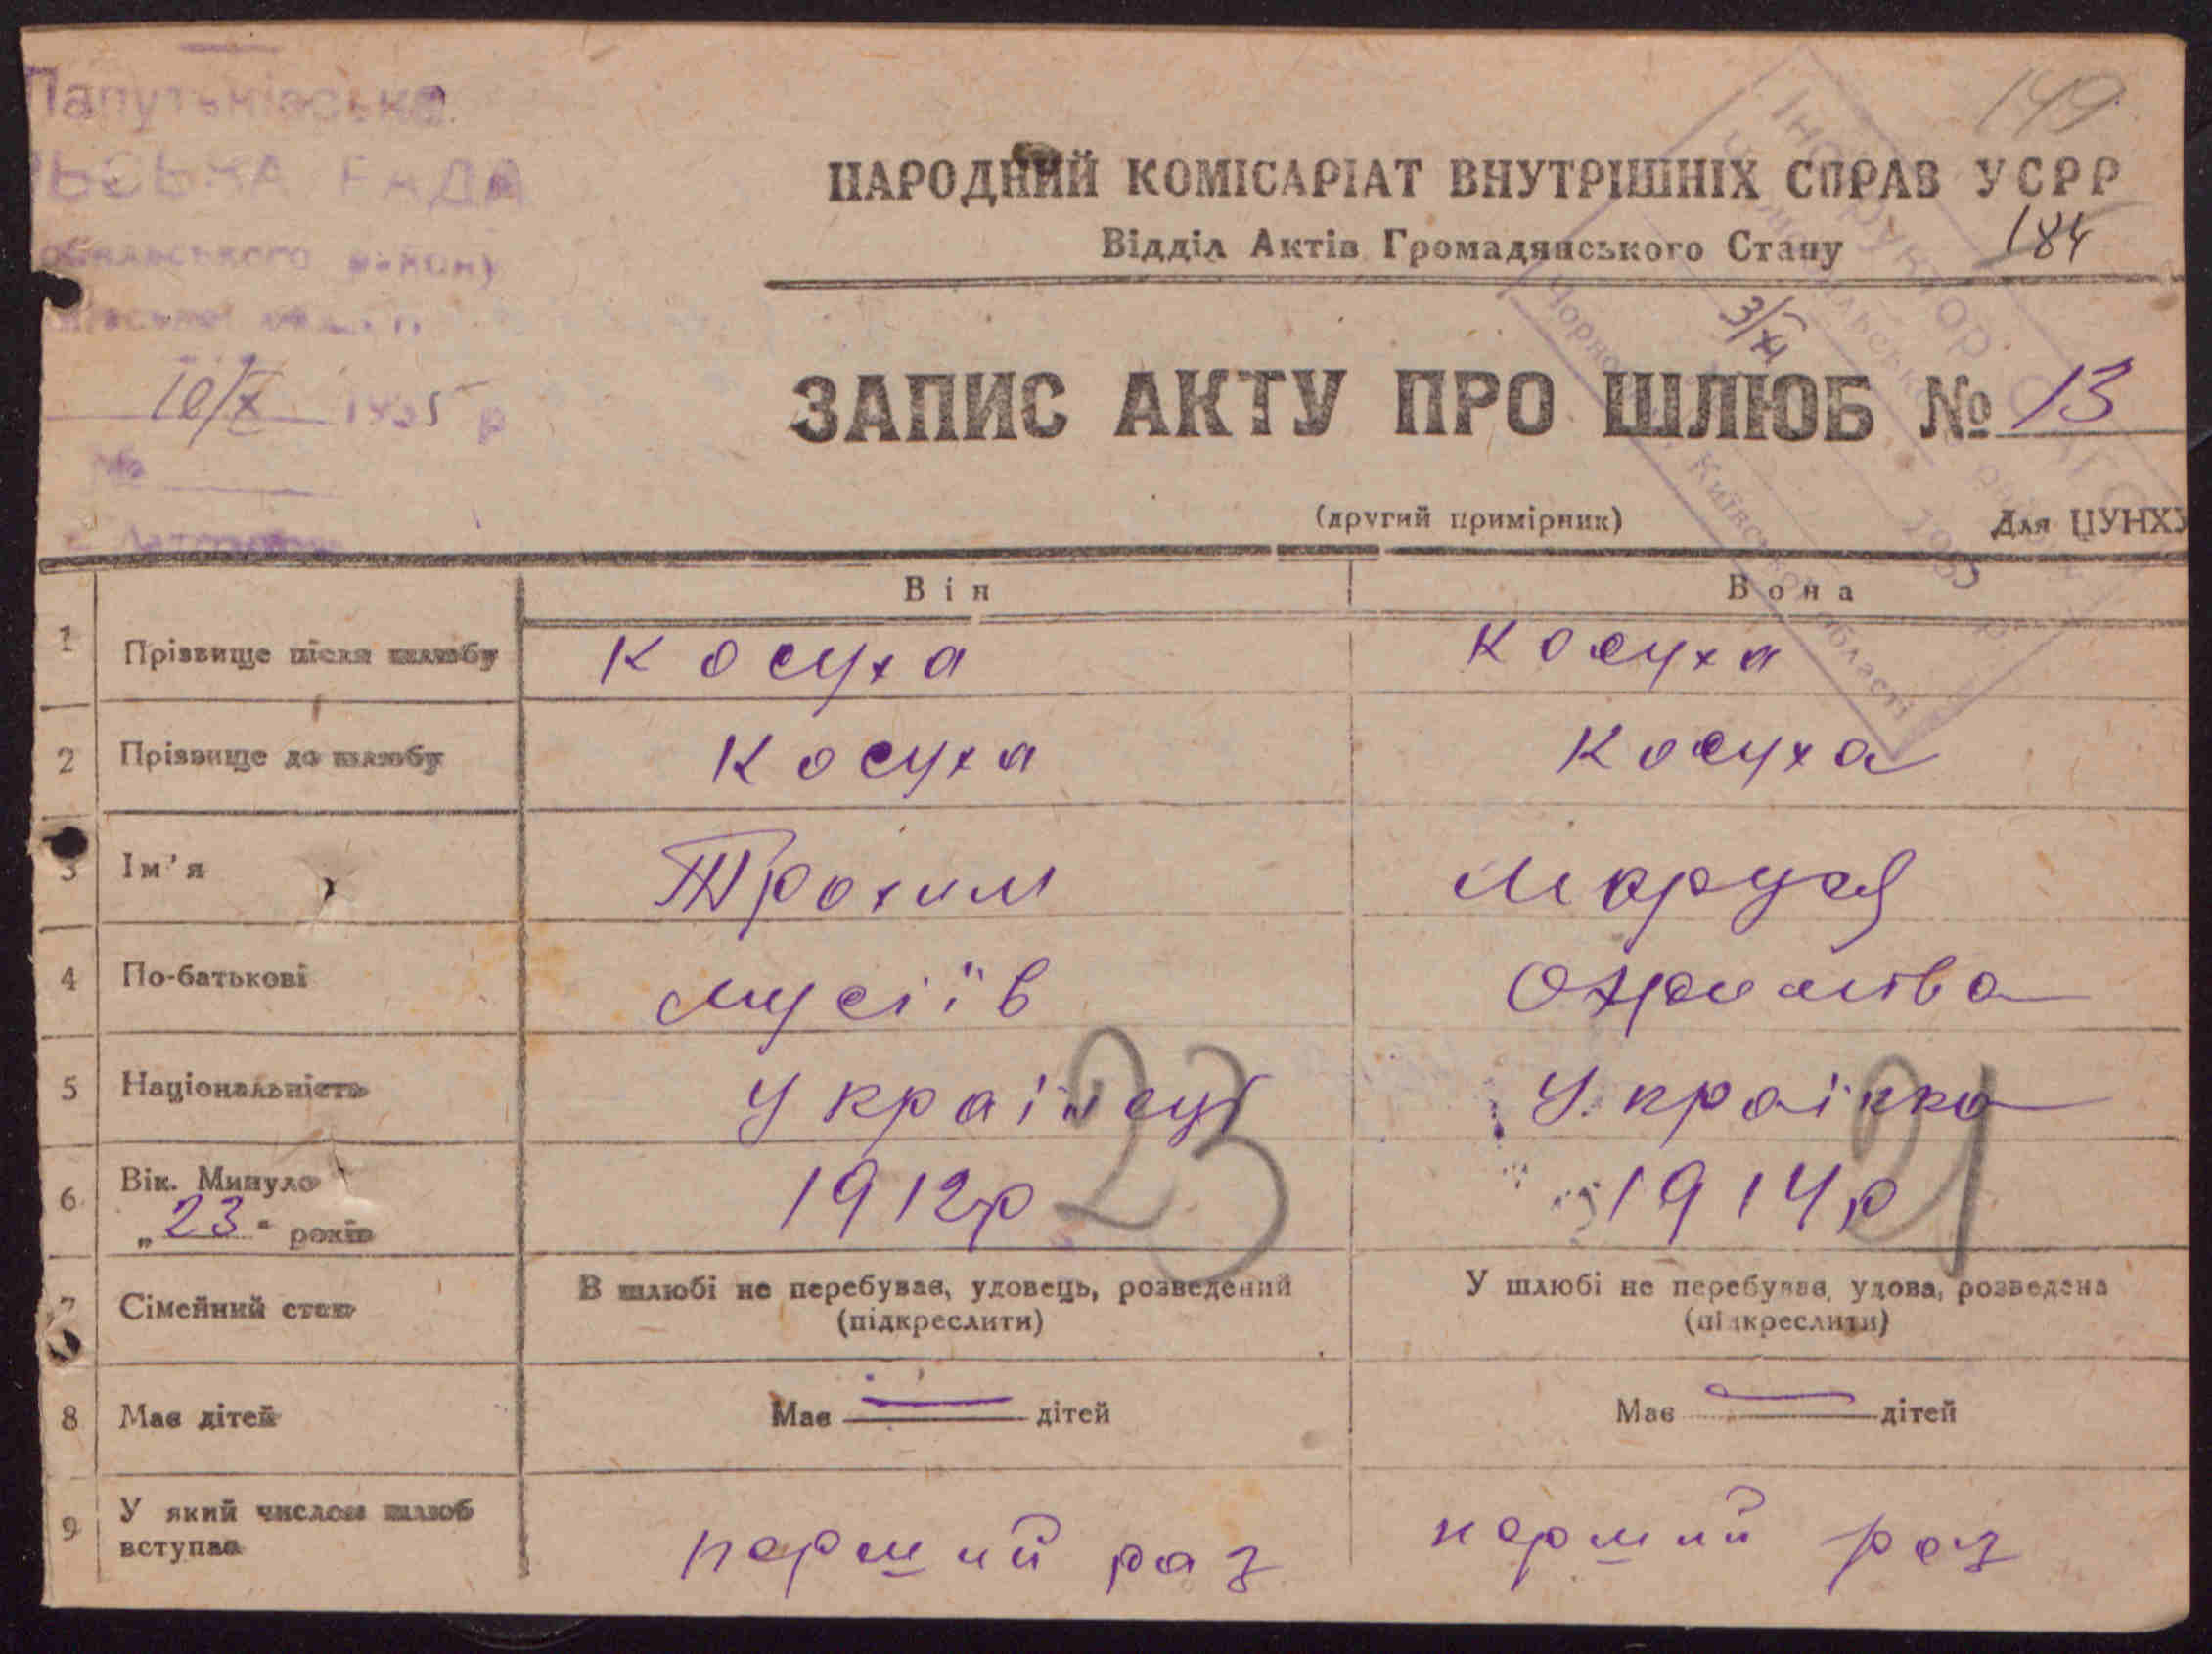 149
НАРОДНИЙ КОМІСАРІАТ ВНУТРІШНІХ СПРАВ УСРР
Відділ Актів Громадянського Стану
184
ЬСЬКА РАДА
10/X 1935 р
№
3/XI
ЗАПИС АКТУ ПРО ШЛЮБ № 13
(другий примірник) Для ЦУНХУ
Інструктор
Київської області
193 р.
Він Вона
1 Прізвище після шлюбу Косуха Косуха
2 Прізвище до шлюбу Косуха Косуха
3 Ім'я Трохим Маруся
4 По-батькові Мусіїв
5 Національність Українец Українка
6 Вік. Минуло „23" років 1912р 23 1914р 21
7 Сімейний стан В шлюбі не перебував, удовець, розведений (підкреслити) У шлюбі не перебував, удова, розведена (підкреслити)
8 Має дітей Має — дітей Має — дітей
9 У який числом шлюб вступає перший раз перший раз